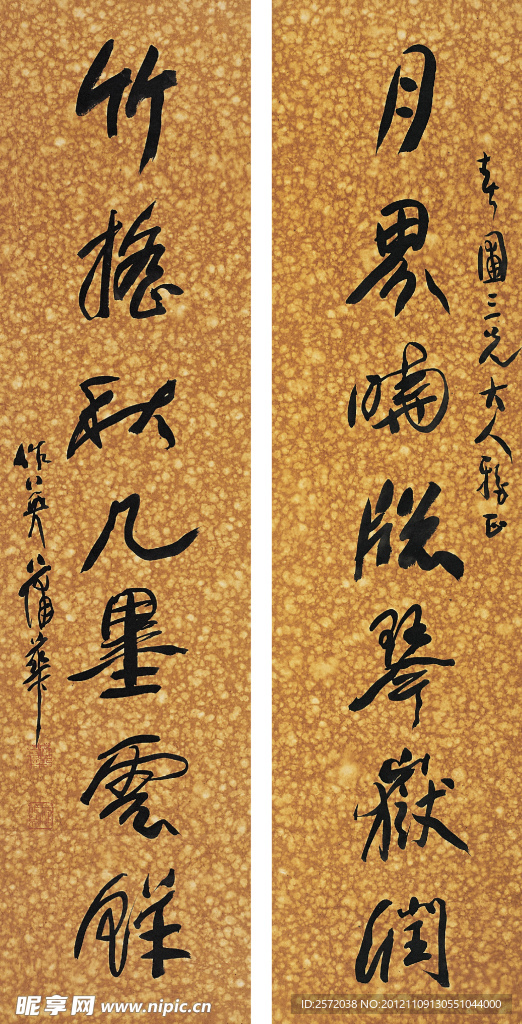 春圃三兄大人雅正
月界曉牕琴嶽潤
竹搖秋几墨雲鮮
作英蒲華
昵享网 www.nipic.cn
ID:2572038 NO:20121109130551044000